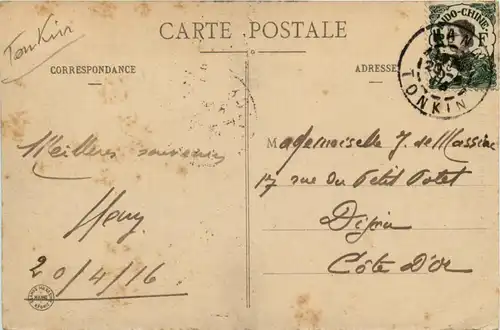 Tonkin
CARTE POSTALE
CORRESPONDANCE
ADRESSE
INDO-CHINE
TONKIN
Meilleurs souvenirs
20/4/16
Mademoiselle J. de Massiac
17 rue du Petit Potet
Dijon
Côte d'Or